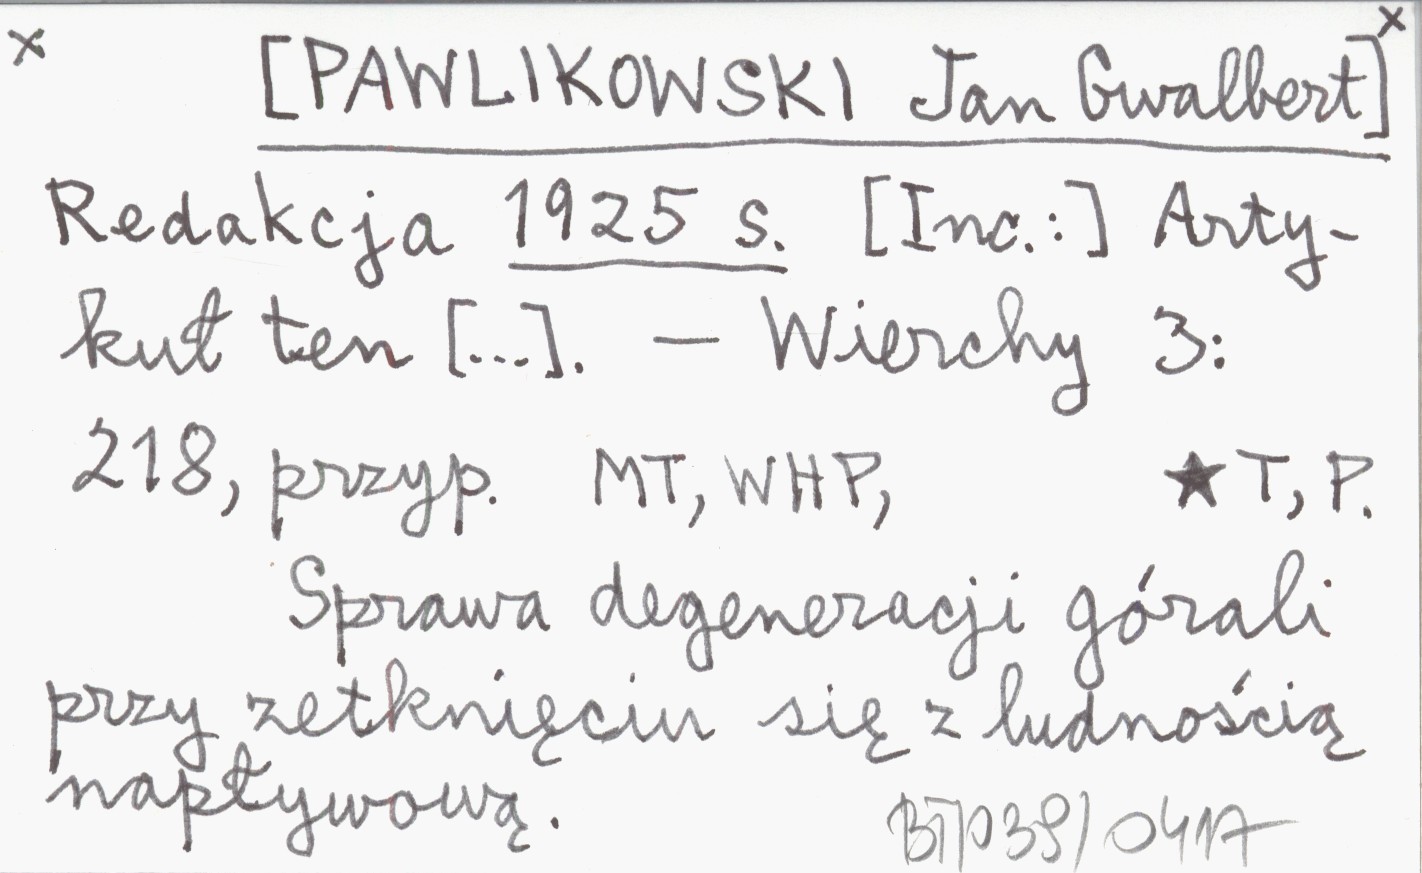 × ×
[PAWLIKOWSKI Jan Gwalbert]
Redakcja 1925 s. [Inc.:] Arty-
kuł ten [...]. — Wierchy 3:
218, przyp. MT, WHP, ★ T, P.
Sprawa degeneracji górali
przy zetknięciu się z ludnością
napływową.